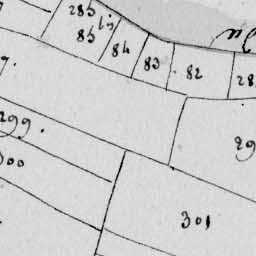 283 bis
85
84
83
82
28
9.
299.
300
29
301